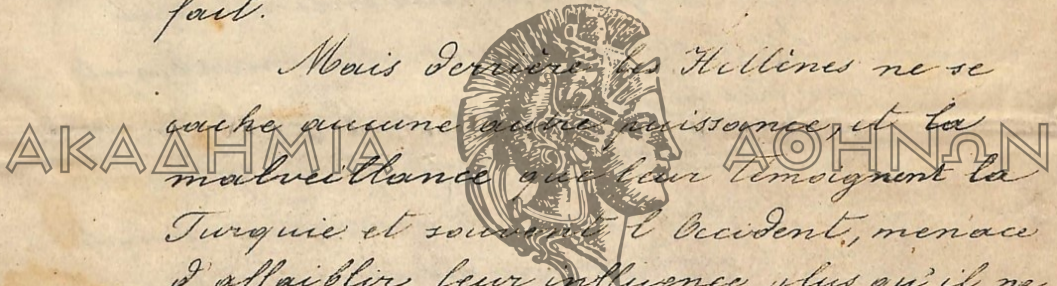 fait.
Mais derrière les Hellènes ne se
cache aucune autre puissance, et la
ΑΚΑΔΗΜΙΑ ΑΘΗΝΩΝ
malveillance que leur témoignent la
Turquie et souvent l'Occident, menace
d'affaiblir leur influence plus qu'il ne